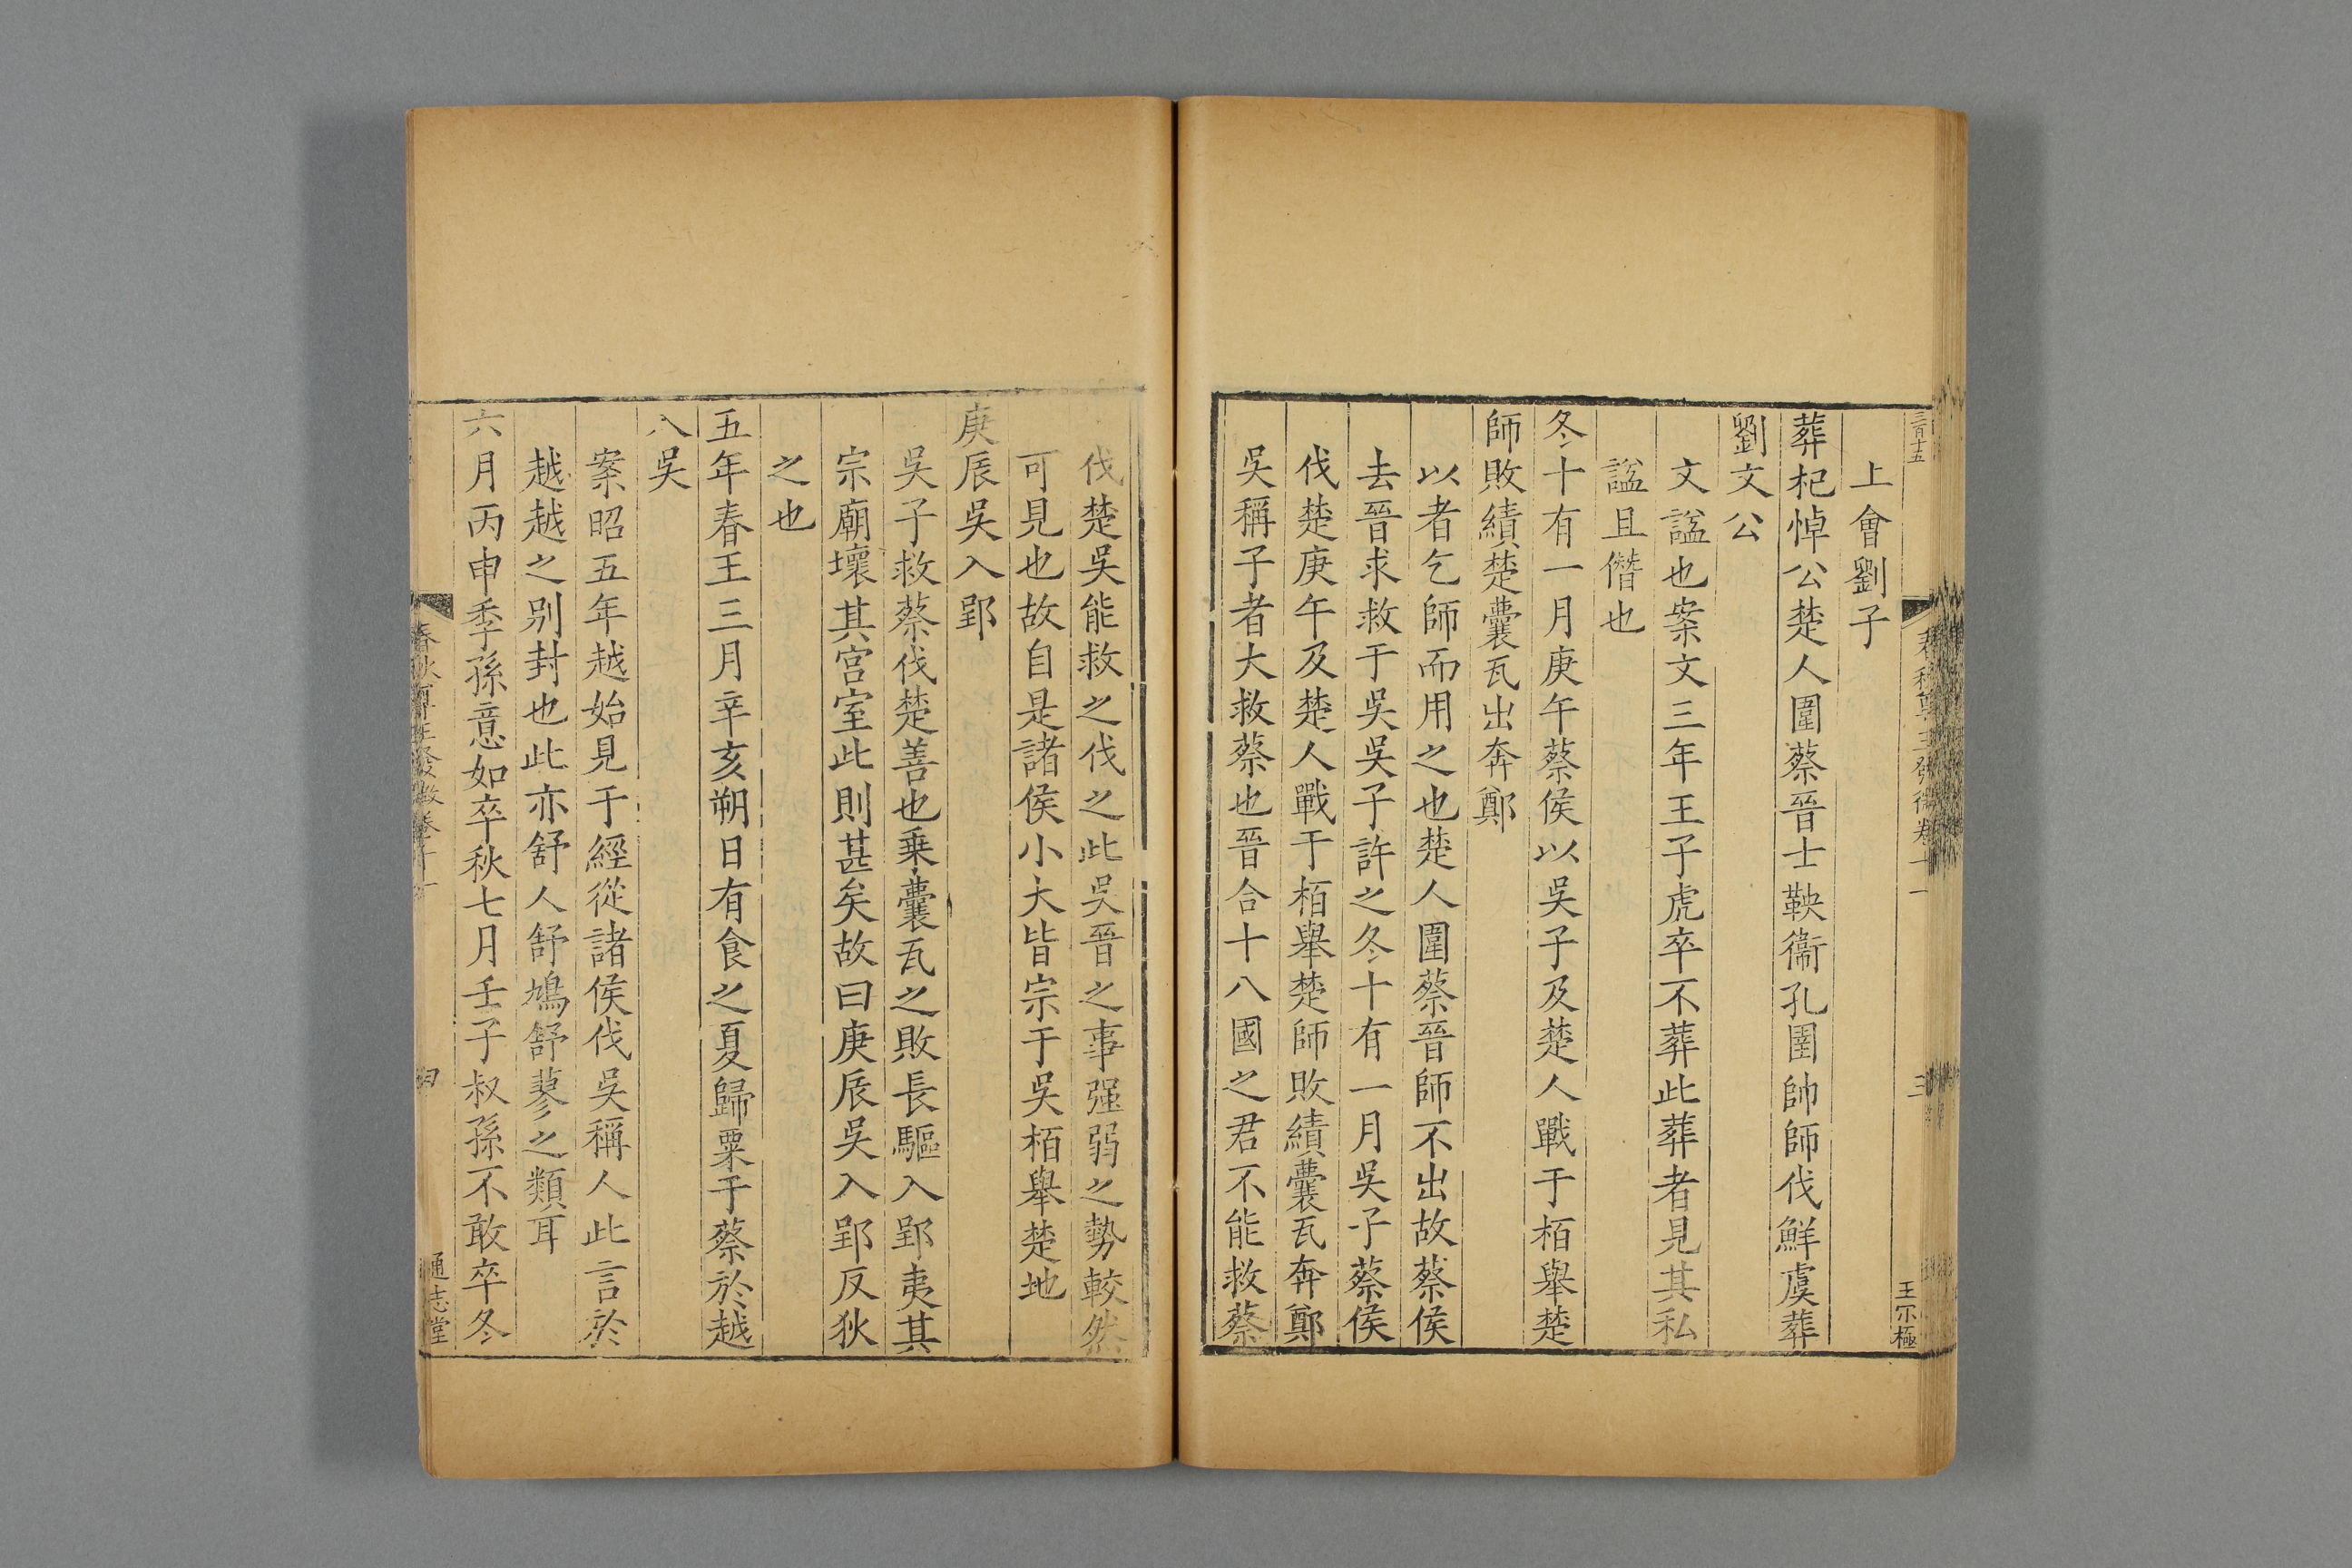 三百十五
春秋尊王發微卷十一
三
王𡩋極
上會劉子
葬杞悼公楚人圍蔡晉士鞅衞孔圉帥師伐鮮虞葬
劉文公
文諡也案文三年王子虎卒不葬此葬者見其私
諡且僭也
冬十有一月庚午蔡侯以吳子及楚人戰于栢舉楚
師敗績楚囊瓦出奔鄭
以者乞師而用之也楚人圍蔡晉師不出故蔡侯
去晉求救于吳吳子許之冬十有一月吳子蔡侯
伐楚庚午及楚人戰于栢舉楚師敗績囊瓦奔鄭
吳稱子者大救蔡也晉合十八國之君不能救蔡
伐楚吳能救之伐之此吳晉之事强弱之勢較然
可見也故自是諸侯小大皆宗于吳栢舉楚地
庚辰吳入郢
吳子救蔡伐楚善也乗囊瓦之敗長驅入郢夷其
宗廟壞其宫室此則甚矣故曰庚辰吳入郢反狄
之也
五年春王三月辛亥朔日有食之夏歸粟于蔡於越
入吳
案昭五年越始見于經從諸侯伐吳稱人此言於
越越之别封也此亦舒人舒鳩舒蓼之類耳
六月丙申季孫意如卒秋七月壬子叔孫不敢卒冬
春秋尊王發微卷十一
通志堂